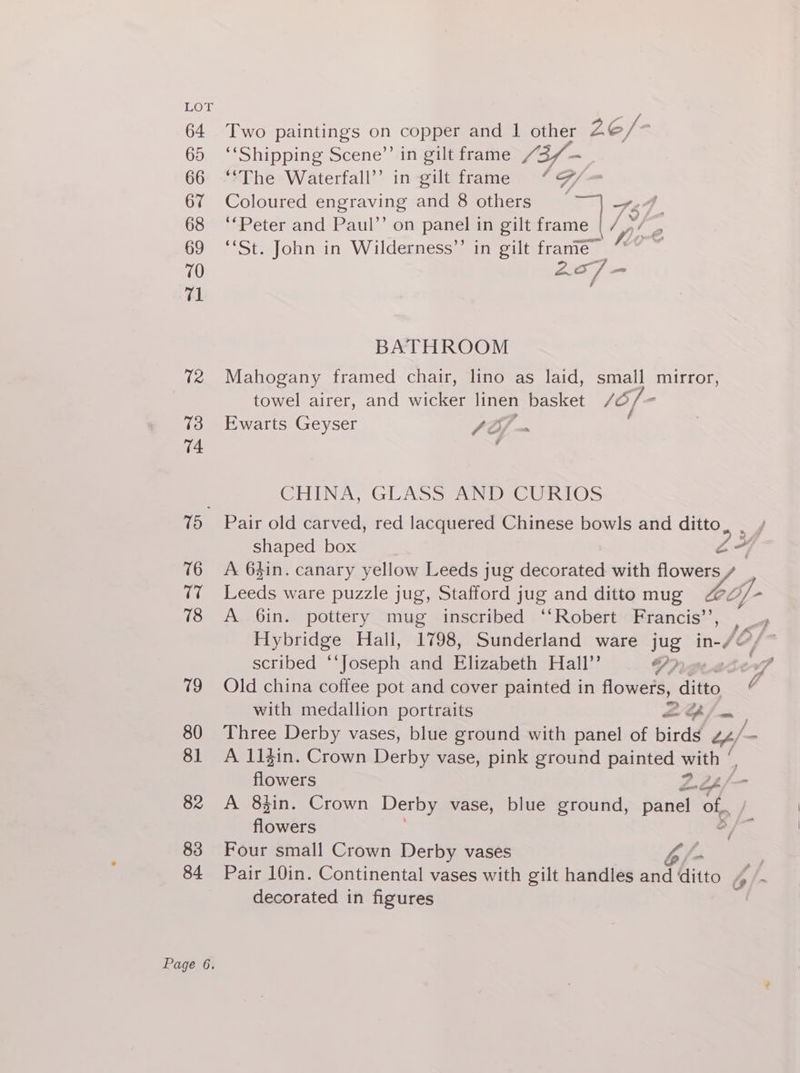 LOT
64 Two paintings on copper and 1 other 26/-
65 “Shipping Scene” in gilt frame
66 “The Waterfall” in gilt frame
67 Coloured engraving and 8 others
68 “Peter and Paul” on panel in gilt frame
69 “St. John in Wilderness” in gilt frame
70
71
BATHROOM
72 Mahogany framed chair, lino as laid, small mirror,
towel airer, and wicker linen basket 10/-
73 Ewarts Geyser 10/-
74
CHINA, GLASS AND CURIOS
75 Pair old carved, red lacquered Chinese bowls and ditto
shaped box
76 A 6½in. canary yellow Leeds jug decorated with flowers
77 Leeds ware puzzle jug, Stafford jug and ditto mug
78 A 6in. pottery mug inscribed “Robert Francis”,
Hybridge Hall, 1798, Sunderland ware jug in-
scribed “Joseph and Elizabeth Hall”
79 Old china coffee pot and cover painted in flowers, ditto
with medallion portraits
80 Three Derby vases, blue ground with panel of birds
81 A 11½in. Crown Derby vase, pink ground painted with
flowers
82 A 8½in. Crown Derby vase, blue ground, panel of
flowers
83 Four small Crown Derby vases 6/-
84 Pair 10in. Continental vases with gilt handles and ditto
decorated in figures
Page 6.